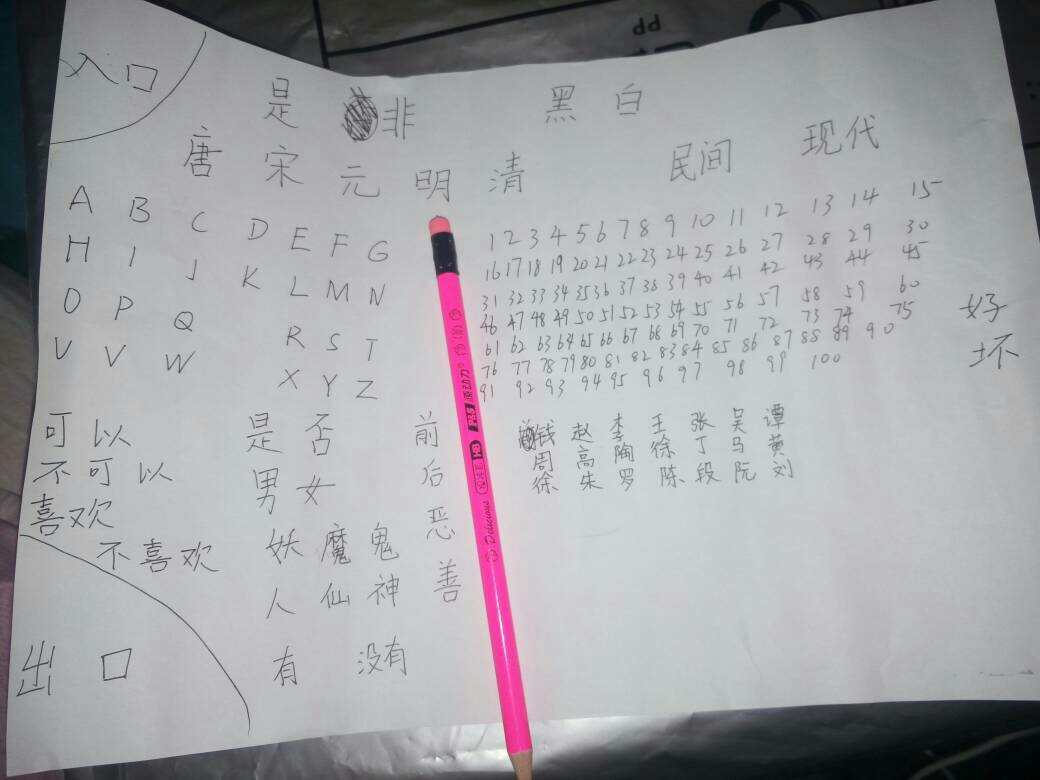 入口
是 非 黑 白
唐 宋 元 明 清 民间 现代
A B C D E F G
H I J K L M N
O P Q R S T
V V W X Y Z
1 2 3 4 5 6 7 8 9 10 11 12 13 14 15
16 17 18 19 20 21 22 23 24 25 26 27 28 29 30
31 32 33 34 35 36 37 38 39 40 41 42 43 44 45
46 47 48 49 50 51 52 53 54 55 56 57 58 59 60
61 62 63 64 65 66 67 68 69 70 71 72 73 74 75
76 77 78 79 80 81 82 83 84 85 86 87 88 89 90
91 92 93 94 95 96 97 98 99 100
好
坏
可以 是 否 前
不可以 男 女 后
喜欢 恶
不喜欢 妖 魔 鬼
人 仙 神 善
钱 赵 李 王 张 吴 谭
周 高 陶 徐 丁 马 黄
徐 朱 罗 陈 段 阮 刘
出口 有 没有
源动力
HB
Delicious
PP